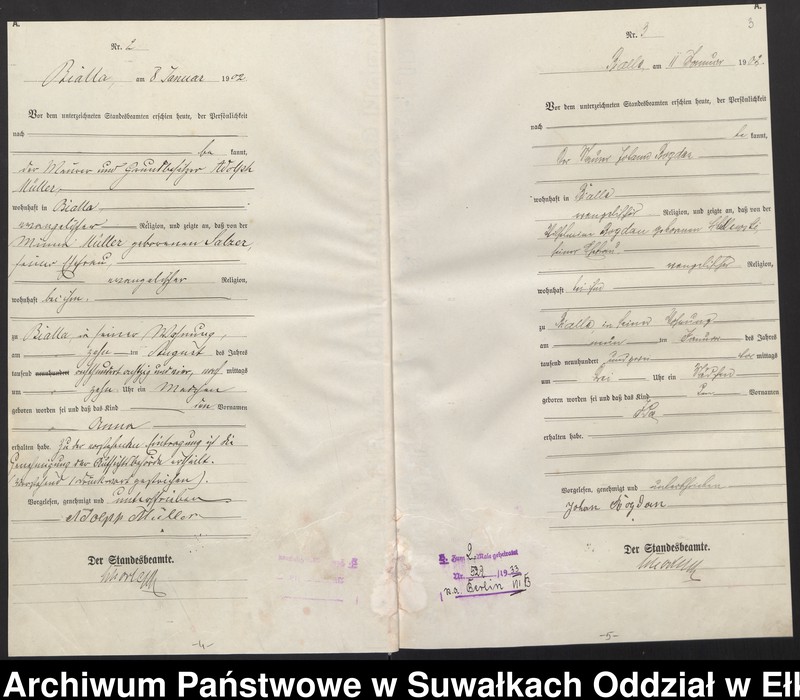 A.
Nr. 2
Bialla, am 8 Januar 1902
Vor dem unterzeichneten Standesbeamten erschien heute, der Persönlichkeit
nach
be kannt,
der Maurer und Grundbesitzer Adolph
Müller,
wohnhaft in Bialla
evangelischer Religion, und zeigte an, daß von der
Minna Müller geborenen Salzer
seiner Ehefrau,
evangelischer Religion,
wohnhaft bei ihm.
zu Bialla, in seiner Wohnung,
am zehn ten August des Jahres
tausend neunhundert achthundert achtzig und vier, nach mittags
um zehn Uhr ein Mädchen
geboren worden sei und daß das Kind den Vornamen
Anna
erhalten habe. Zu der vorstehenden Eintragung ist die
Genehmigung der Aufsichtsbehörde erteilt.
(Vorstehend 1 Druckwort gestrichen).
Vorgelesen, genehmigt und unterschrieben
Adolph Müller
Der Standesbeamte.
-4-
A.
3
Nr. 3
Bialla, am 11 Januar 1902.
Vor dem unterzeichneten Standesbeamten erschien heute, der Persönlichkeit
nach
be kannt,
Der Maurer Johann Bogdan
wohnhaft in Bialla
evangelischer Religion, und zeigte an, daß von der
Wilhelmine Bogdan geborenen
seiner Ehefrau
evangelischer Religion,
wohnhaft bei ihm
zu Bialla, in seiner Wohnung
am neun ten Januar des Jahres
tausend neunhundert und zwei vor mittags
um drei Uhr ein Mädchen
geboren worden sei und daß das Kind den Vornamen
Ida
erhalten habe.
Vorgelesen, genehmigt und unterschrieben
Johan Bogdan
Der Standesbeamte.
Zum 2. Male geheiratet
Nr. /1933
Berlin
-5-
Archiwum Państwowe w Suwałkach Oddział w Eł